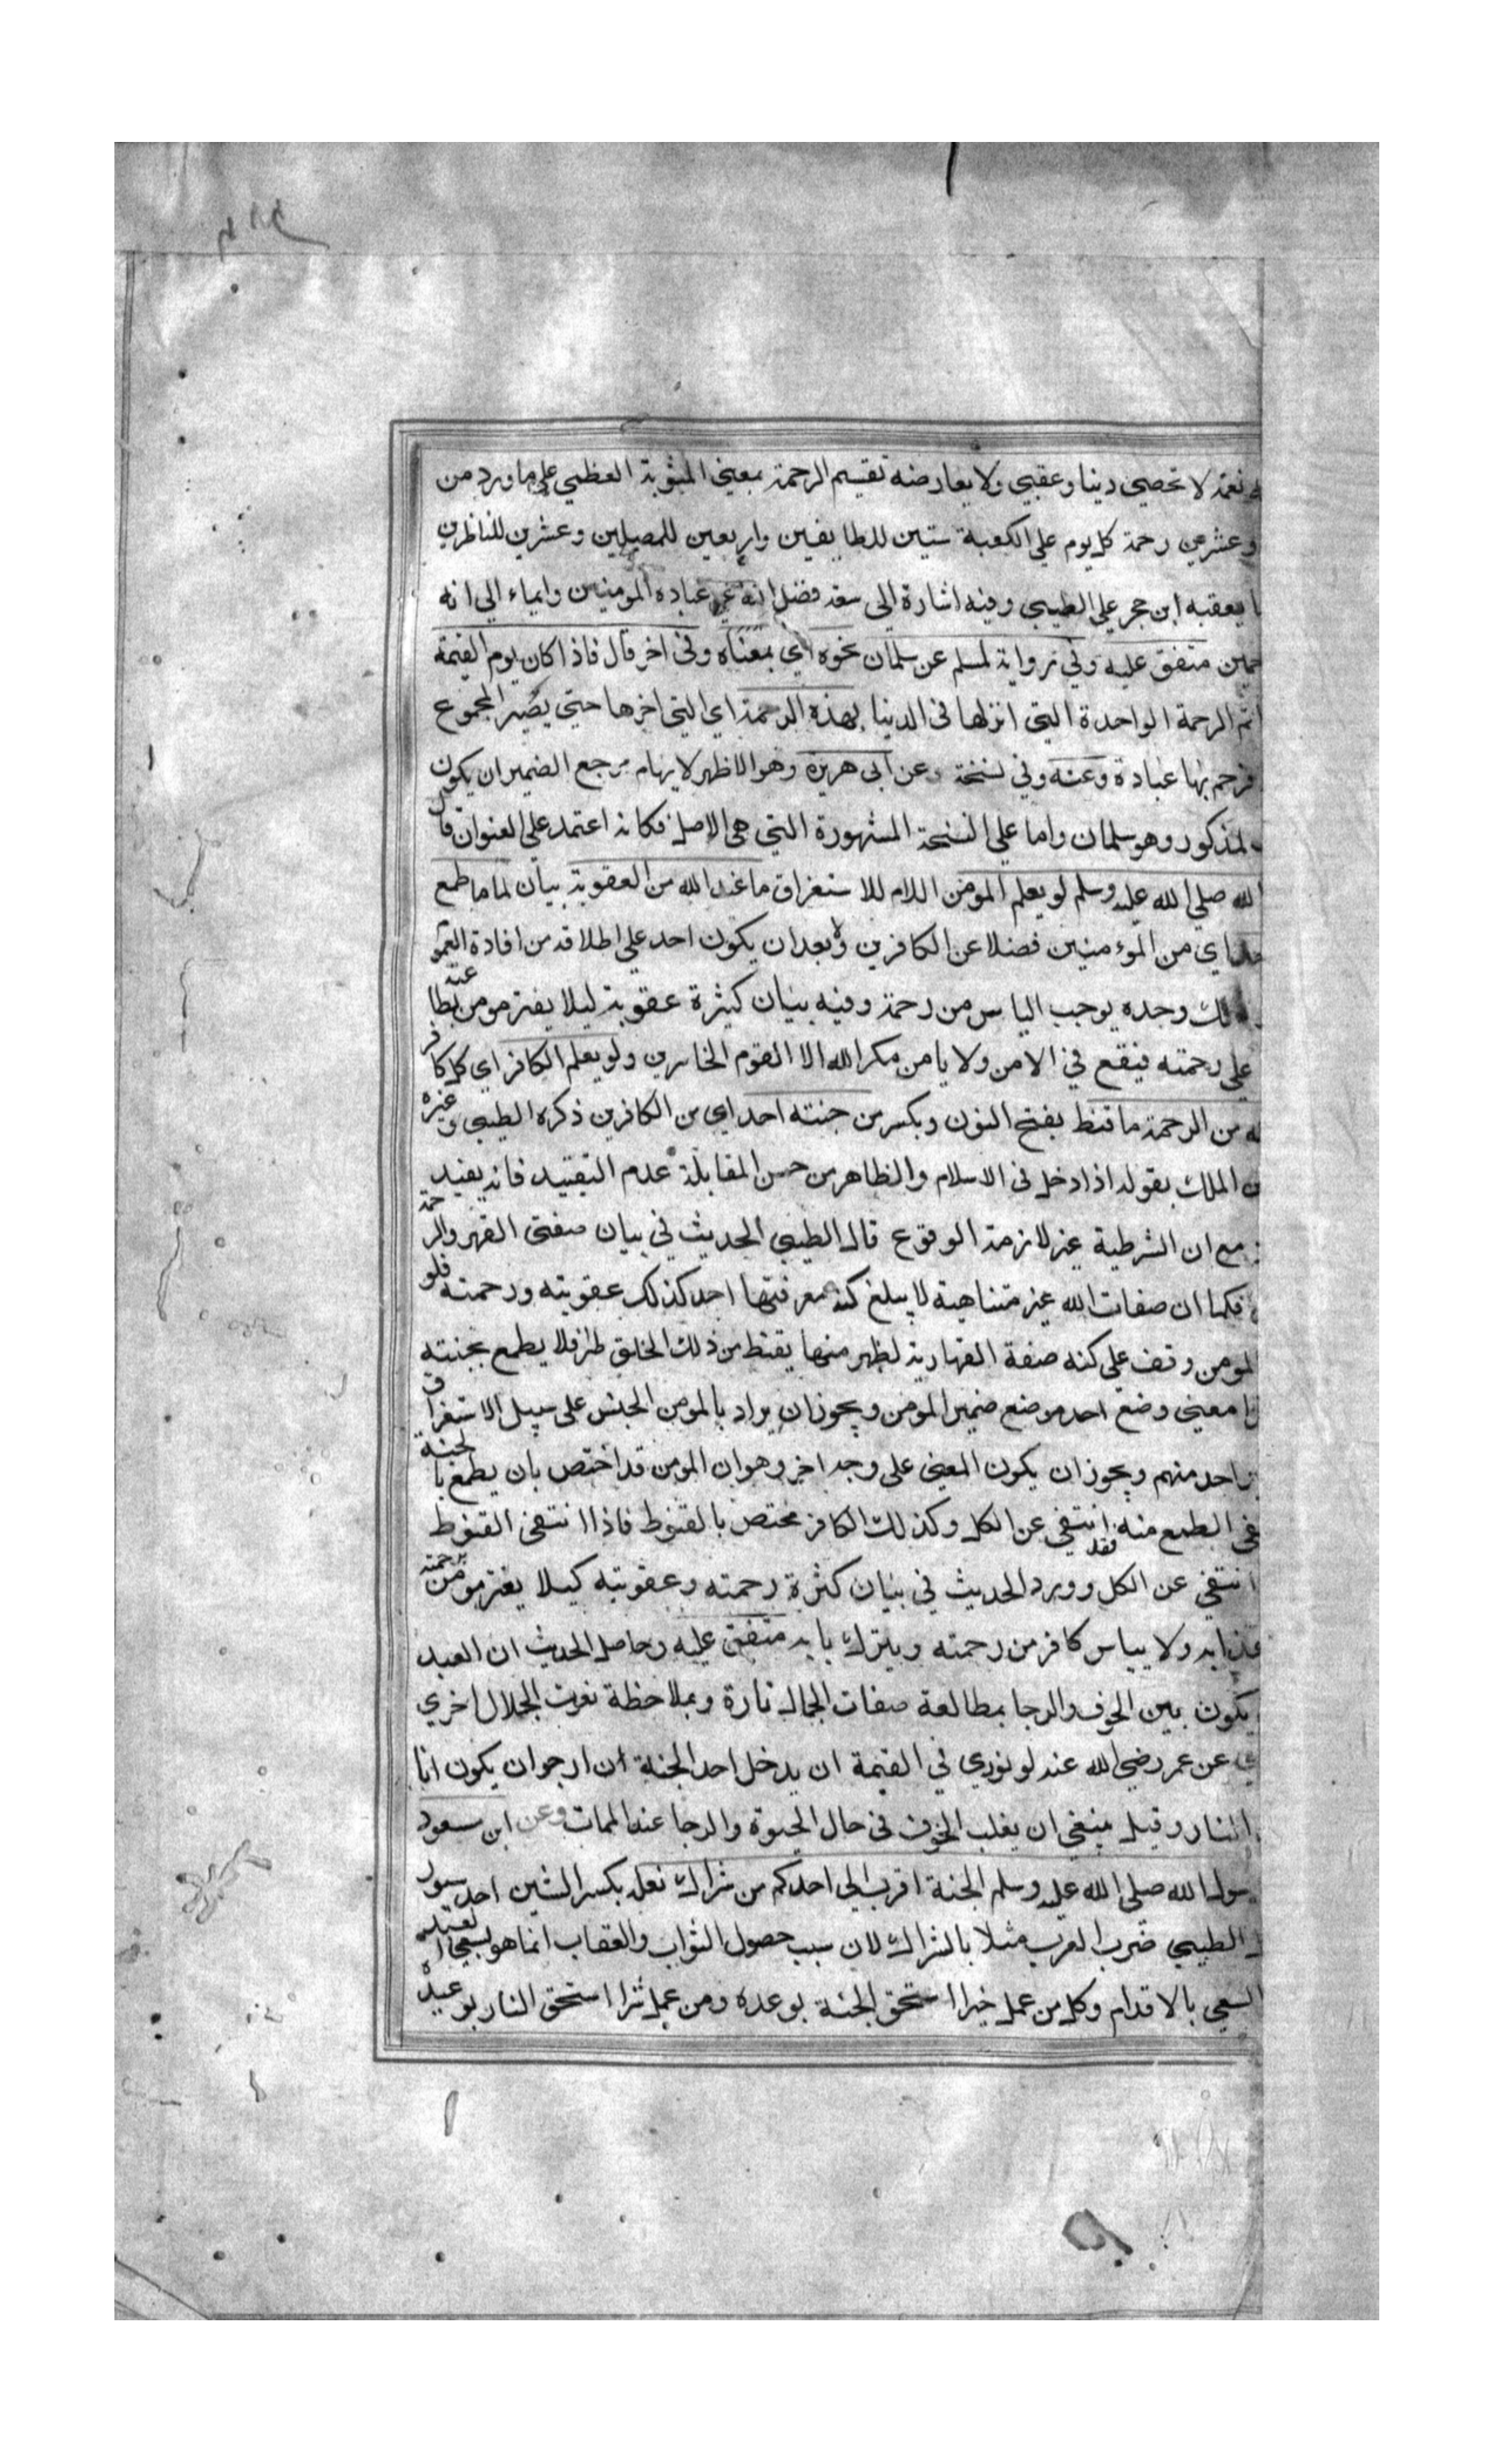 نعمة لا تحصى دينا وعقبى ولا يعارضه تقسيم الرحمة بمعنى المثوبة العظمي على ما ورد من
وعشرين رحمة كل يوم على الكعبة ستين للطايفين واربعين للمصلين وعشرين للناظرين
يعقبه ابن حجر على الطيبي وفيه اشارة الى سعة فضل الله على عباده المومنين وايماء الي انه
متفق عليه وفي رواية لمسلم عن سلمان نحوه اي بمعناه وفى اخر قال فاذا كان يوم القيمة
الرحمة الواحدة التي انزلها فى الدنيا بهذه الرحمة اي التي اخرها حتي يصير المجموع
فرحم بها عباده وعنه وفي نسخة وعن ابى هريرة وهو الاظهر لايهام مرجع الضمير ان يكون
لمذكور وهو سلمان واما على النسخة المشهورة التي هى الاصل فكانه اعتمد على العنوان قال
الله صلى الله عليه وسلم لو يعلم المومن اللام للاستغراق ما عند الله من العقوبة بيان لما ما طمع
اي من المؤمنين فضلا عن الكافرين ولا بعد ان يكون احد على اطلاقه من افادة العمو
وحده يوجب الياس من رحمة وفيه بيان كثرة عقوبة ليلا يغتر مومن بطاعته
على رحمته فيقع في الامن ولا يامن مكر الله الا القوم الخاسرين ولو يعلم الكافر اي كل كافر
من الرحمة ما قنط بفتح النون وبكسر من جنته احد اي من الكافرين ذكره الطيبي وغيره
الملك بقوله اذا دخل فى الاسلام والظاهر من حسن المقابلة عدم التقييد فانه يفيد
مع ان الشرطية غير لازمة الوقوع قال الطيبي الحديث في بيان صفتى القهر والرحمة
فكما ان صفات الله غير متناهية لا يبلغ كنه معرفتها احد كذلك عقوبته ورحمته فلو
المومن وقف على كنه صفة القهارية لظهر منها يقنط من ذلك الخلق طرا فلا يطمع بجنته
معنى وضع احد موضع ضمير المومن ويجوز ان يراد بالمومن الجنس على سبيل الاستغراق
احد منهم ويجوز ان يكون المعنى على وجه اخر وهو ان المومن قد اختص بان يطمع بالجنة
الطمع منه فقد انتفي عن الكل وكذلك الكافر مختص بالقنوط فاذا انتفى القنوط
انتفي عن الكل وورد الحديث في بيان كثرة رحمته وعقوبته كيلا يغتر مومن برحمته
عذابه ولا يياس كافر من رحمته ويترك بابه متفق عليه وحاصل الحديث ان العبد
يكون بين الخوف والرجا بمطالعة صفات الجمال تارة وبملاحظة نعوت الجلال اخري
عن عمر رضي الله عنه لو نودي في القيمة ان يدخل احد الجنة ان ارجو ان يكون انا
النار وقيل ينبغي ان يغلب الخوف فى حال الحيوة والرجا عند الممات وعن ابن مسعود
رسول الله صلى الله عليه وسلم الجنة اقرب الى احدكم من شراك نعله بكسر الشين احد سيور
الطيبي ضرب العرب مثلا بالشراك لان سبب حصول الثواب والعقاب انما هو بسعي العبد
السعي بالاقدام وكل من عمل خيرا استحق الجنة بوعده ومن عمل شرا استحق النار بوعيده